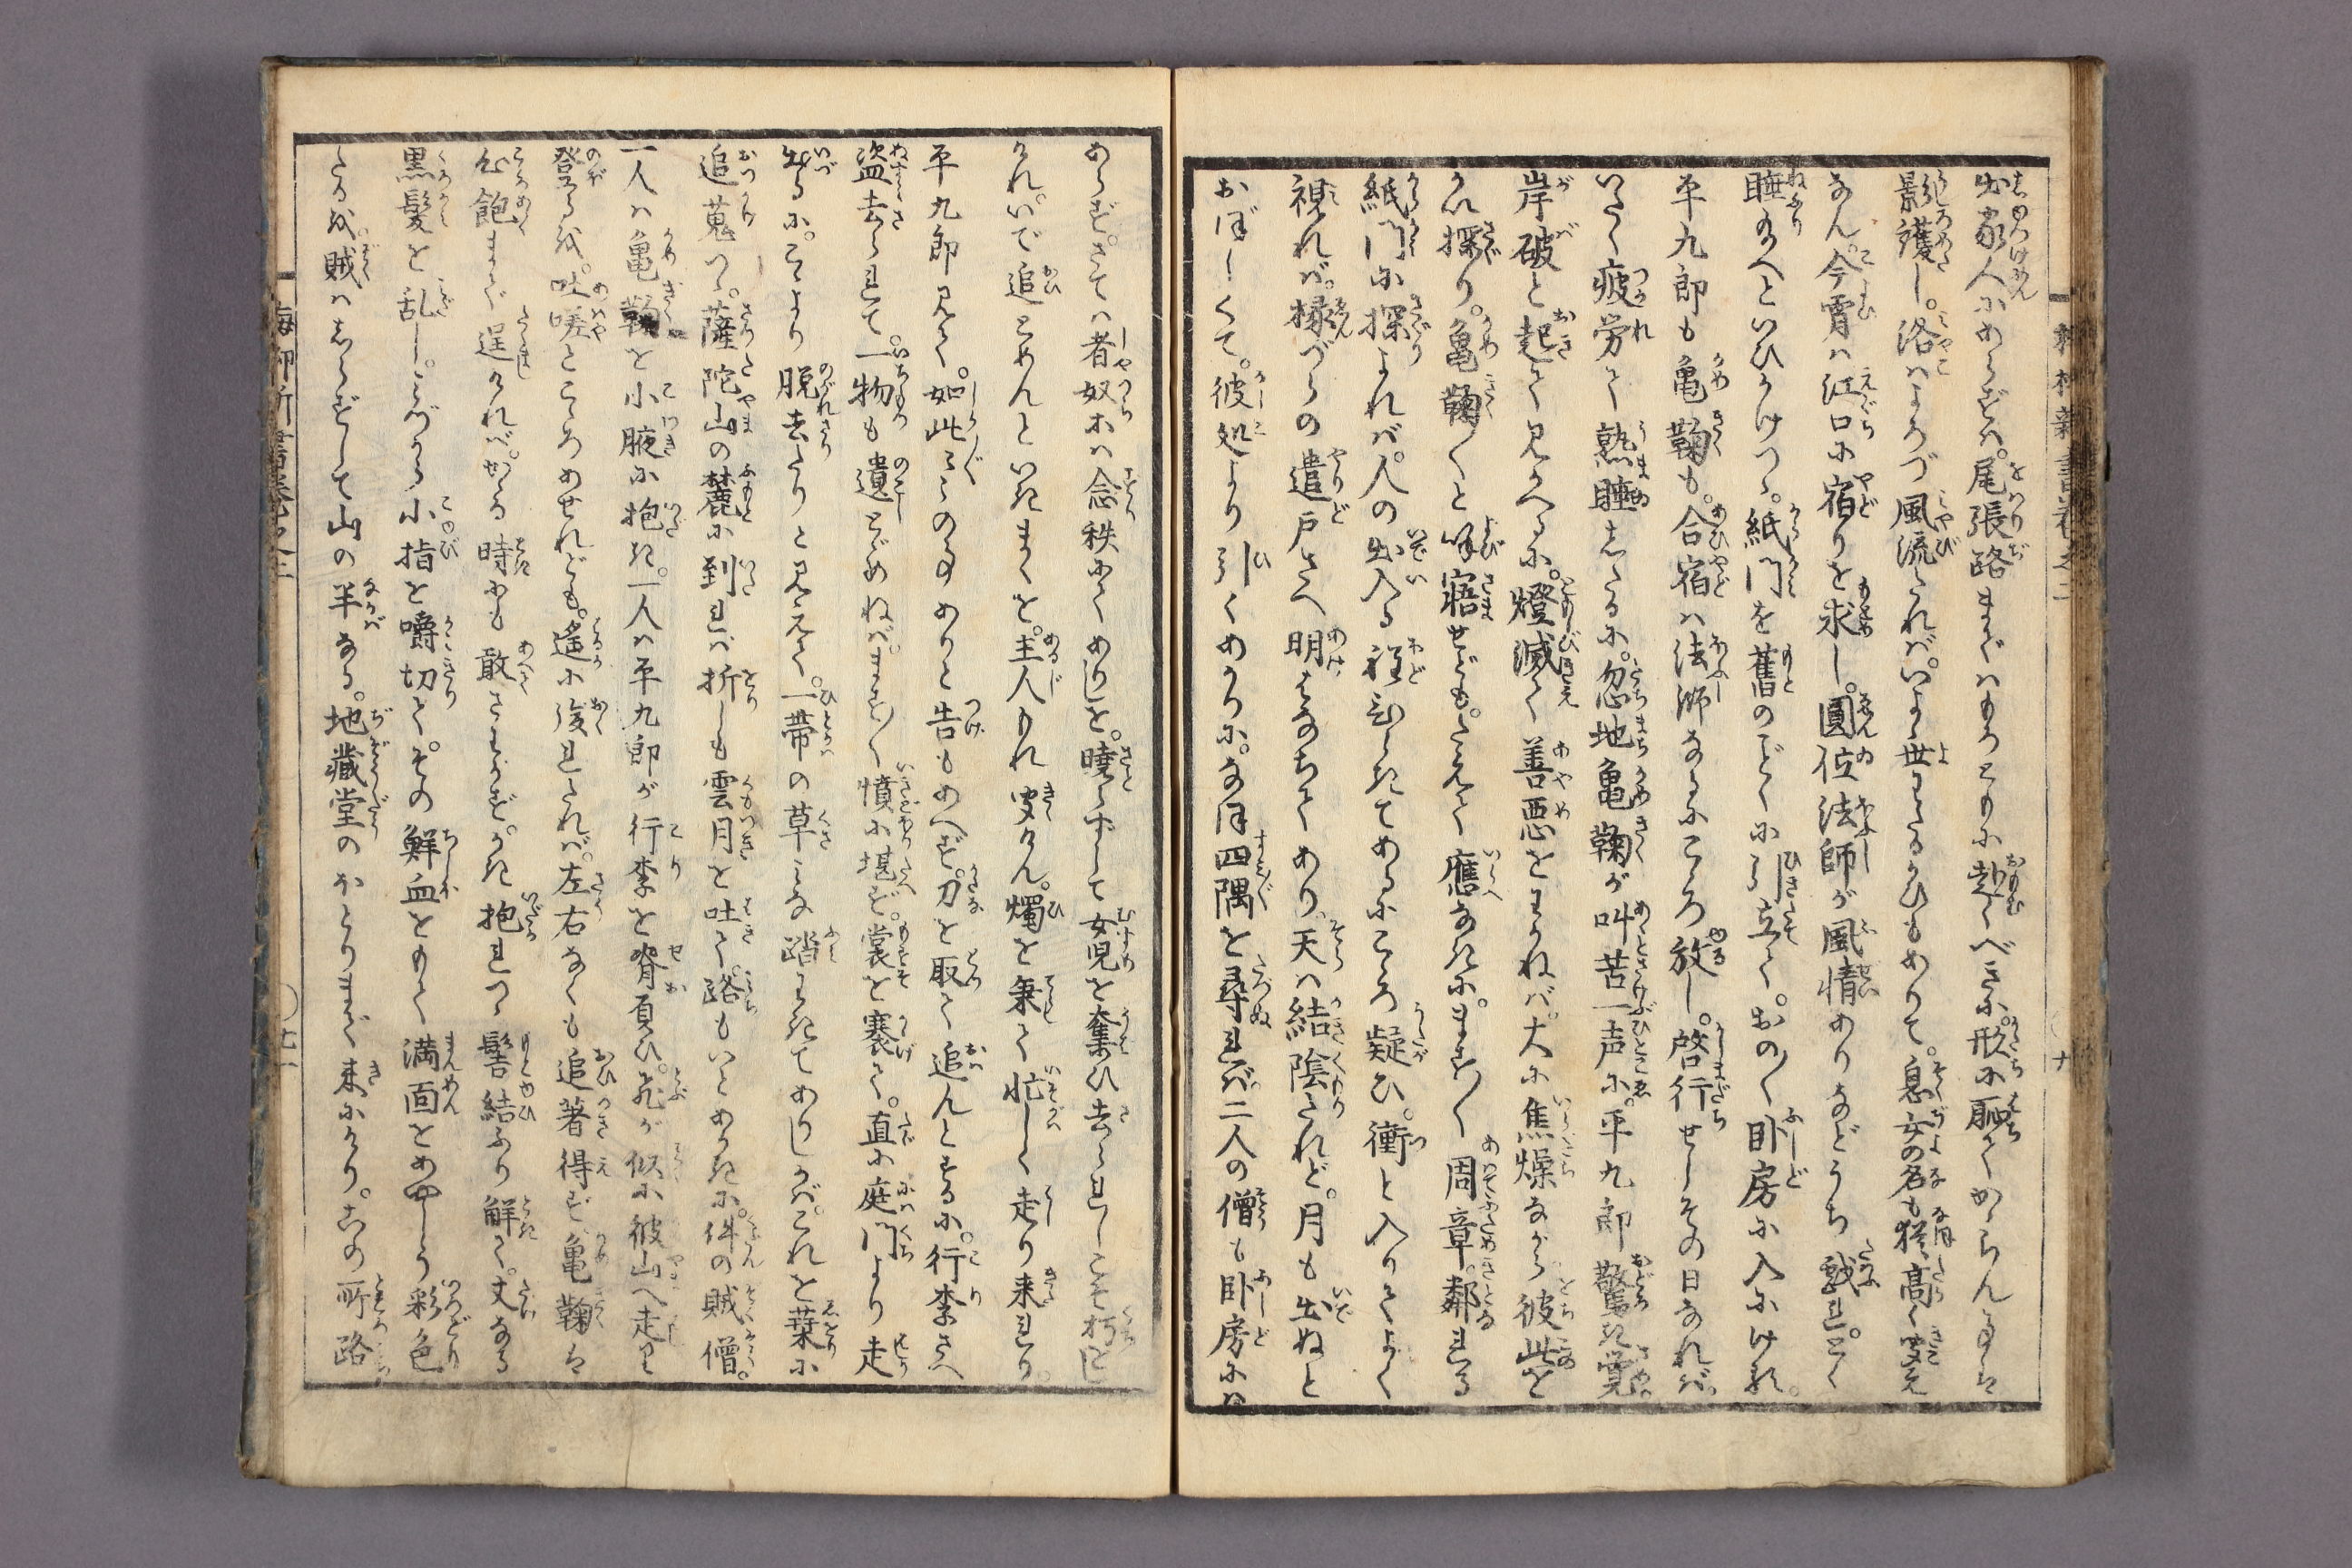 出家人にあらずは。尾張路まではもろともに赴くべきに。形に恥てかゝらん事は
影護し。洛はよろづ風流たれば。いよゝ世わたるかひもありて。息女の名も猶高く聞え
なん。今宵は江口に宿りを求し。圓位法師が風情ありなどうち戯れ。とく
睡給へといひかけつゝ。紙門を舊のごとくに引立て。おの〳〵臥房に入にける。
平九郎も亀鞠も。合宿は法師なるにこゝろ放し。啓行せしその日なれば。
いたく疲労て熟睡したるに。忽地亀鞠が叫苦一声に。平九郎驚き覚
岸破と起て見かへるに。燈滅て善悪をわかねば。大に焦燥ながら彼此を
かい探り。亀鞠〳〵と呼寤せども。たえて應なきに。ます〳〵周章。鄰れる
紙門に探よれば。人の出入る程ひらきてあるにこゝろ疑ひ。衝と入りてよく
視れば。縁づらの遣戸さへ明はなちてあり。天は結陰たれど。月も出ぬと
おぼしくて。彼処より引くあかりに。なほ四隅を尋れば二人の僧も臥房にな
あらず。さては者奴等は念秧にてありしを。暁らずして女児を奪ひ去られしこそ朽をし
けれ。いで追とめんといきまくを。主人もれ聞けん。燭を秉て忙しく走り来れり。
平九郎見て。如此〻〻の事ありと告もあへず。刀を取て追んとするに。行李さへ
盗去られて。一物も遺とゞめねば。ます〳〵憤に堪ず。裳を褰げて。直に庭門より走
出るに。こゝより脱去たりと見えて。一帯の草みな踏わきてありしかば。これを栞に
追蒐つゝ。薩陀山の麓に到れば折しも雲月を吐て。路もいとあかきに。件の賊僧。
一人は亀鞠を小腋に抱き。一人は平九郎が行李を脊負ひ。飛が似に彼山へ走り
登るを。吐嗟とこゝろあせれども。遙に後れたれば。左右なくも追著得ず亀鞠は
心飽まで逞しければ。かゝる時にも敢さわがず。かき抱れつゝ髻結ふり解て。丈なる
黒髪を乱し。みづから小指を嚼切て。その鮮血をもて満面をあやしう彩色
たるを。賊はしらずして山の半なる。地藏堂のほとりまで来にけり。この所路